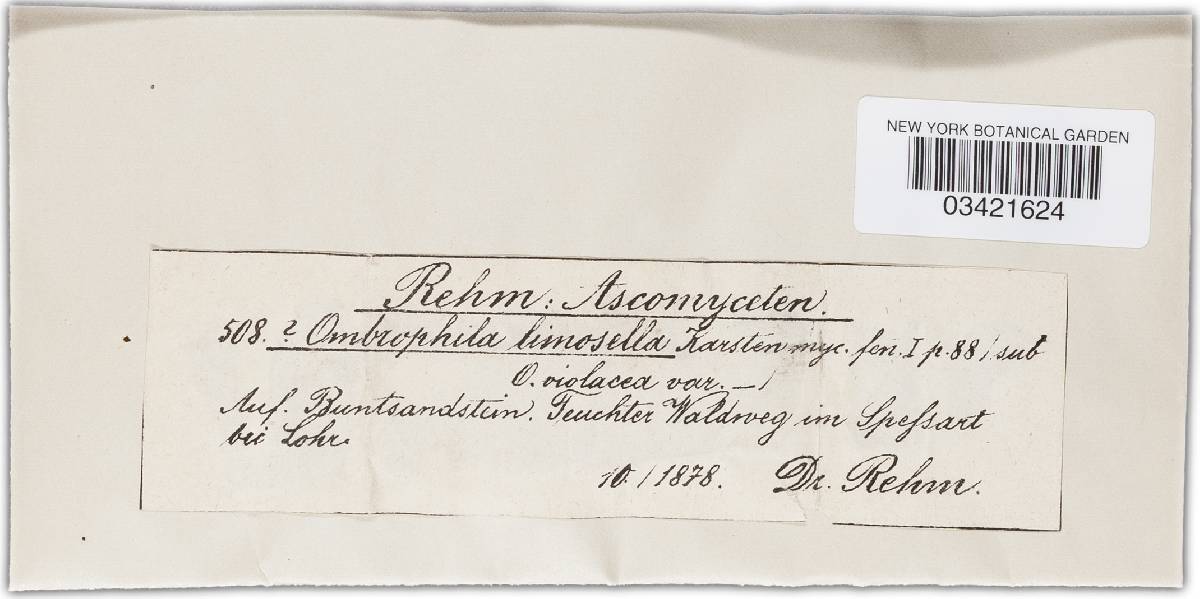 NEW YORK BOTANICAL GARDEN
03421624
Rehm: Ascomyceten.
508. ? Ombrophila limosella Karsten myc. fen. I p. 88 / sub
O. violacea var. — /
Auf. Buntsandstein. Feuchter Waldweg im Speſsart
bei Lohr.
10. / 1878. Dr. Rehm.